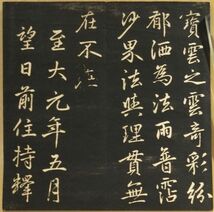 寶雲之雲奇彩紛
郁洒為法雨普霑
沙果法與理貫無
在不注
至大元年五月
望日前住持釋